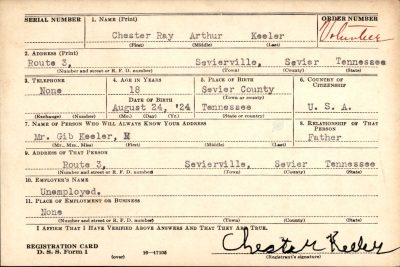 SERIAL NUMBER 1. NAME (Print) ORDER NUMBER
Chester Ray Arthur Keeler Volunteer
(First) (Middle) (Last)
2. ADDRESS (Print)
Route 3, Sevierville, Sevier Tennessee
(Number and street or R. F. D. number) (Town) (County) (State)
3. TELEPHONE 4. AGE IN YEARS 5. PLACE OF BIRTH 6. COUNTRY OF CITIZENSHIP
None 18 Sevier County
DATE OF BIRTH (Town or county)
August 24, '24 Tennessee U. S. A.
(Exchange) (Number) (Mo.) (Day) (Yr.) (State or country)
7. NAME OF PERSON WHO WILL ALWAYS KNOW YOUR ADDRESS 8. RELATIONSHIP OF THAT PERSON
Mr. Gib Keeler, Father
(Mr., Mrs., Miss) (First) (Middle) (Last)
9. ADDRESS OF THAT PERSON
Route 3, Sevierville, Sevier Tennessee
(Number and street or R. F. D. number) (Town) (County) (State)
10. EMPLOYER'S NAME
Unemployed.
11. PLACE OF EMPLOYMENT OR BUSINESS
None
(Number and street or R. F. D. number) (Town) (County) (State)
I AFFIRM THAT I HAVE VERIFIED ABOVE ANSWERS AND THAT THEY ARE TRUE.
REGISTRATION CARD
D. S. S. Form 1 (over) 16—17105 Chester Keeler
(Registrant's signature)